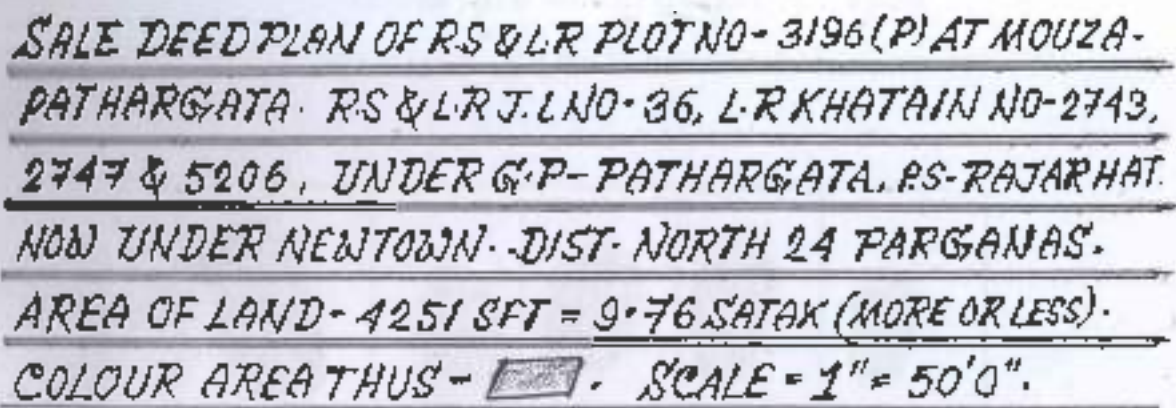 SALE DEED PLAN OF R.S & L.R PLOT NO - 3196 (P) AT MOUZA-
PATHARGATA. R.S & L.R J.L NO - 36, L.R KHATAIN NO-2743,
2747 & 5206, UNDER G.P - PATHARGATA, P.S-RAJARHAT.
NOW UNDER NEWTOWN. DIST- NORTH 24 PARGANAS.
AREA OF LAND - 4251 SFT = 9.76 SATAK (MORE OR LESS).
COLOUR AREA THUS - . SCALE = 1" = 50'0".